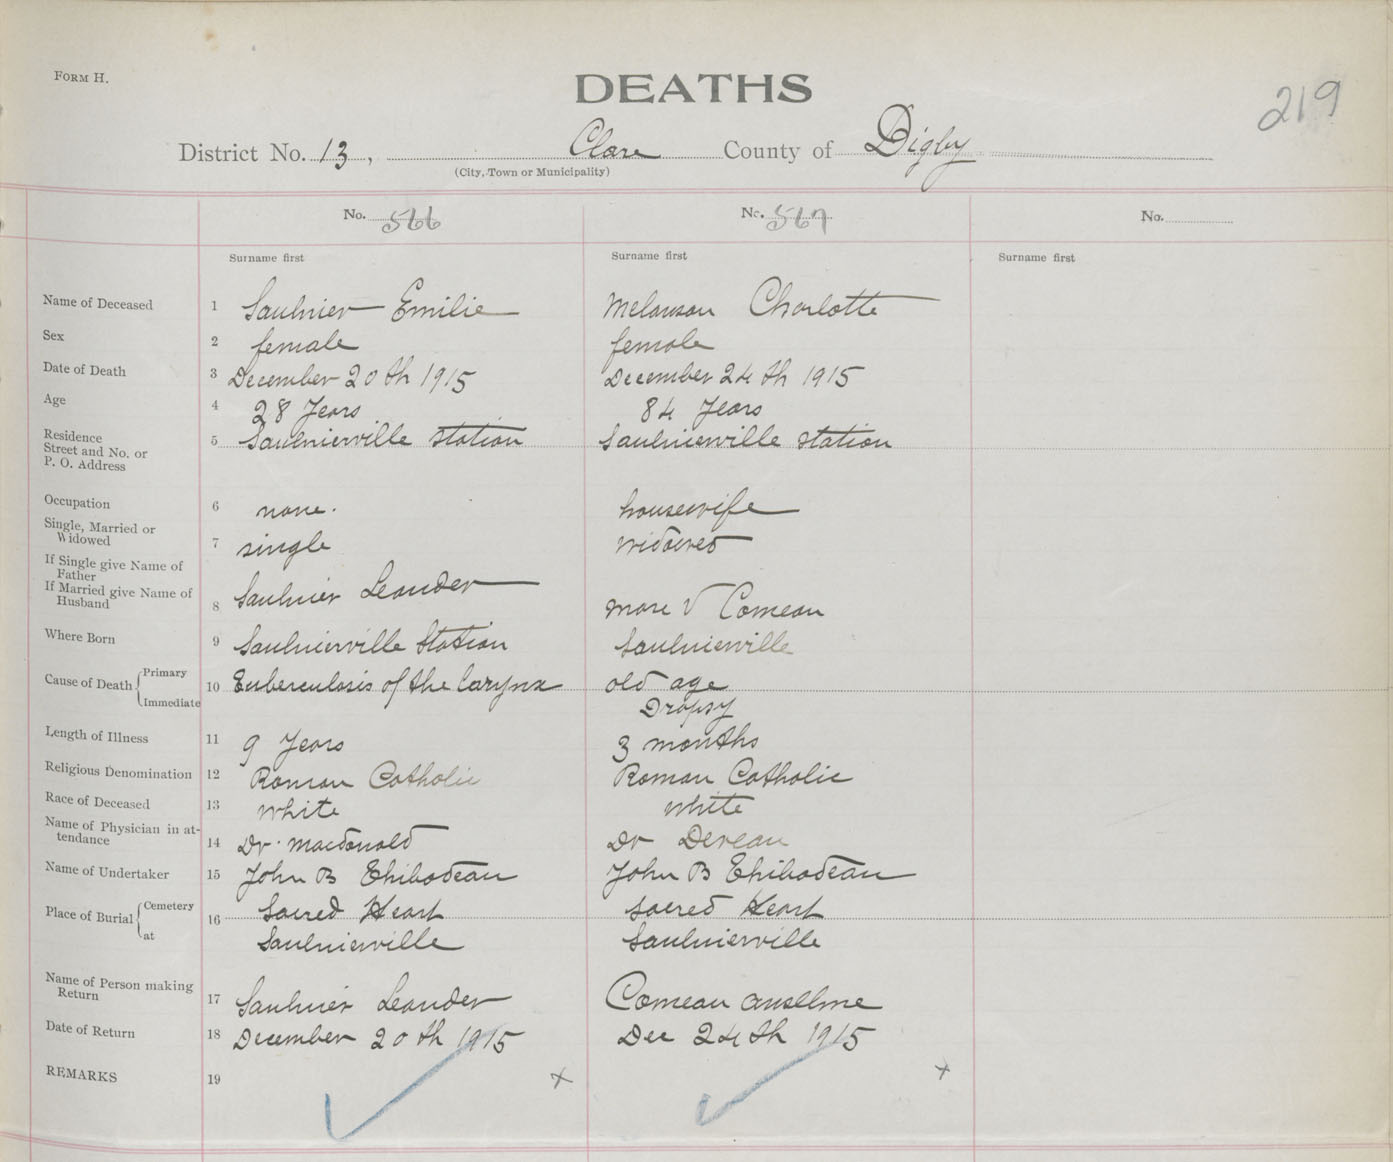 FORM H.
DEATHS
219
District No. 13, Clare County of Digby
(City, Town or Municipality)
No. 566 No. 567 No.
Surname first Surname first Surname first
Name of Deceased 1 Saulnier Emilie Melanson Charlotte
Sex 2 female female
Date of Death 3 December 20th 1915 December 24th 1915
Age 4 28 Years 84 Years
Residence Street and No. or P. O. Address 5 Saulnierville Station Saulnierville station
Occupation 6 none. housewife
Single, Married or Widowed 7 single widowed
If Single give Name of Father
If Married give Name of Husband 8 Saulnier Leander V Comeau
Where Born 9 Saulnierville Station Saulnierville
Cause of Death Primary 10 Tuberculosis of the larynx old age
Immediate Dropsy
Length of Illness 11 9 Years 3 months
Religious Denomination 12 Roman Catholic Roman Catholic
Race of Deceased 13 white white
Name of Physician in attendance 14 Dr. Macdonald Dr Deveau
Name of Undertaker 15 John B Thibodeau John B Thibodeau
Place of Burial Cemetery 16 Sacred Heart Sacred Heart
at Saulnierville Saulnierville
Name of Person making Return 17 Saulnier Leander Comeau Anselme
Date of Return 18 December 20th 1915 Dec 24th 1915
REMARKS 19 x x